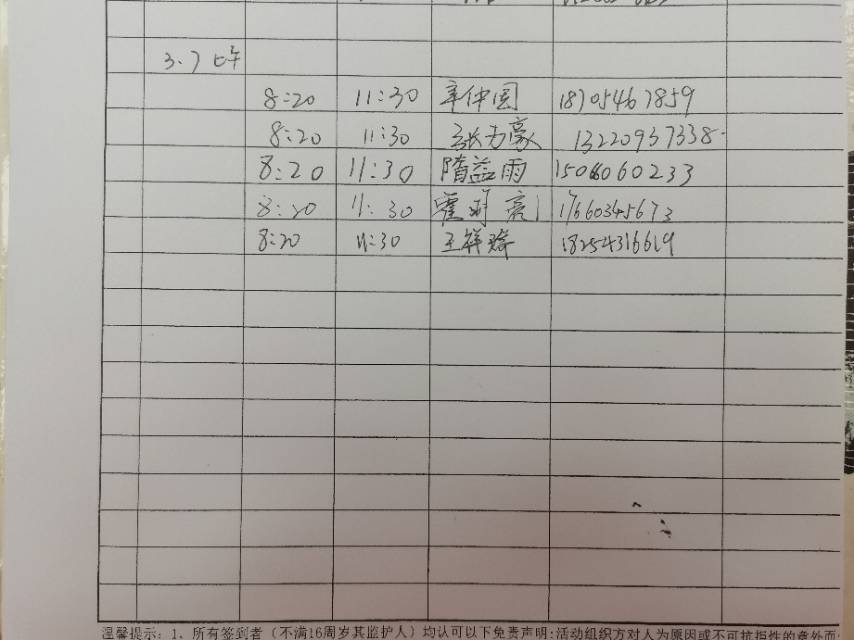 3.7 上午
8:20 11:30 辛仲图 18705467859
8:20 11:30 张力豪 13220937338
8:20 11:30 隋益雨 15066060233
8:20 11:30 霍明亮 17660345673
8:20 11:30 王祥 18254316619
温馨提示: 1、所有签到者(不满16周岁其监护人)均认可以下免责声明:活动组织方对人为原因或不可抗拒性的意外而